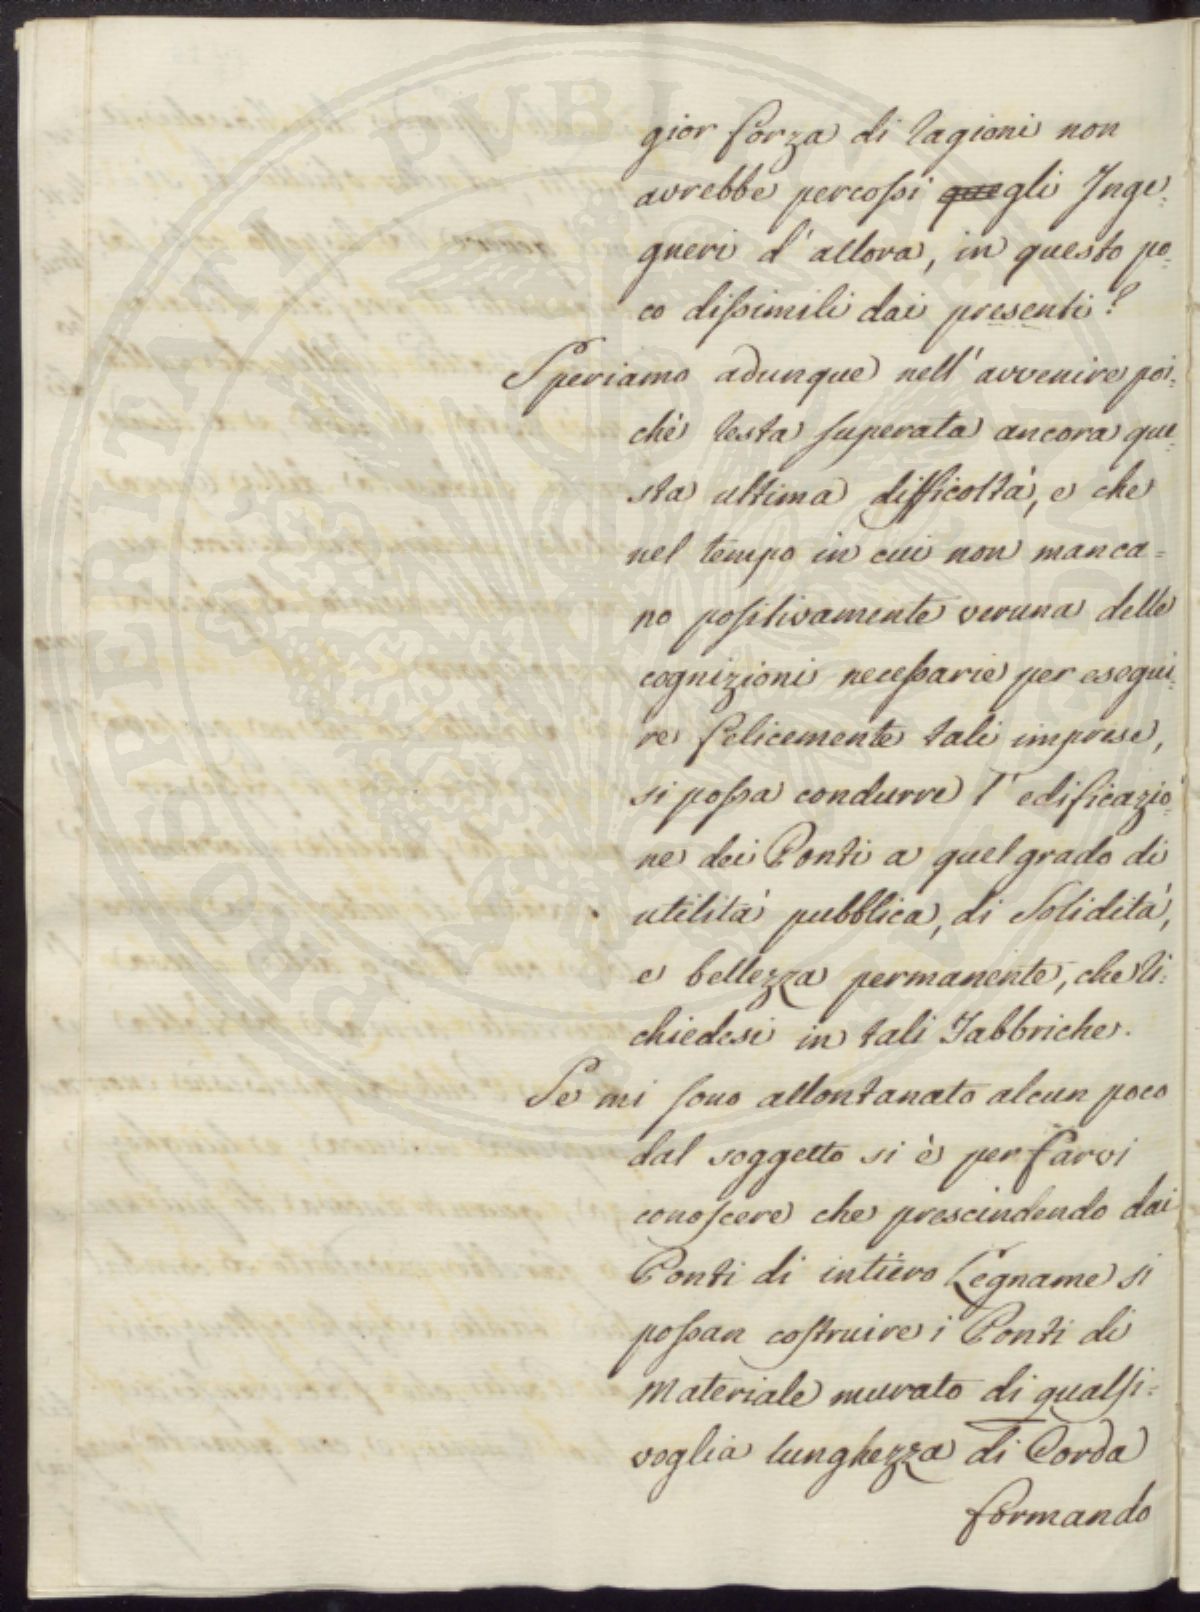 gior forza di ragioni non
avrebbe percossi quegli Inge-
gneri d'allora, in questo po-
co dissimili dai presenti?
Speriamo adunque nell'avvenire poi-
chè resta superata ancora que-
sta ultima difficoltà, e che
nel tempo in cui non manca-
no positivamente veruna delle
cognizioni necessarie per esegui-
re felicemente tali imprese,
si possa condurre l'edificazio-
ne dei Ponti a quel grado di
utilità pubblica, di Solidità,
e bellezza permanente, che ri-
chiedesi in tali Fabbriche.
Se mi sono allontanato alcun poco
dal soggetto si è per farvi
conoscere che prescindendo dai
Ponti di intiero Legname si
possan costruire i Ponti di
materiale murato di qualsi-
voglia lunghezza di Corda
formando